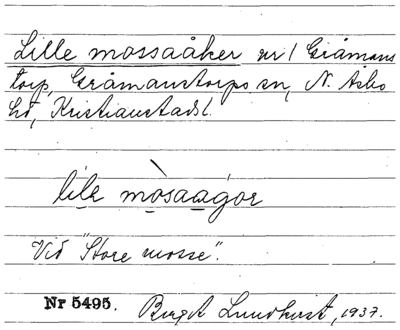 Lille mossaåker nr 1 Gråmans
torp, Gråmanstorps sn, N. Åsbo
hd, Kristianstads l.
lile mòsaagor
Vid "Store mosse".
Nr 5495. Birgit Lundkvist, 1937.